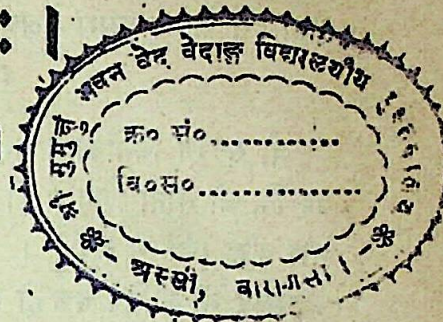 श्री मुमुक्षु भवन वेद वेदाङ्ग विद्यालयीय
क्र० सं०.............
वि०सं०.................
अस्सी, वाराणसी।